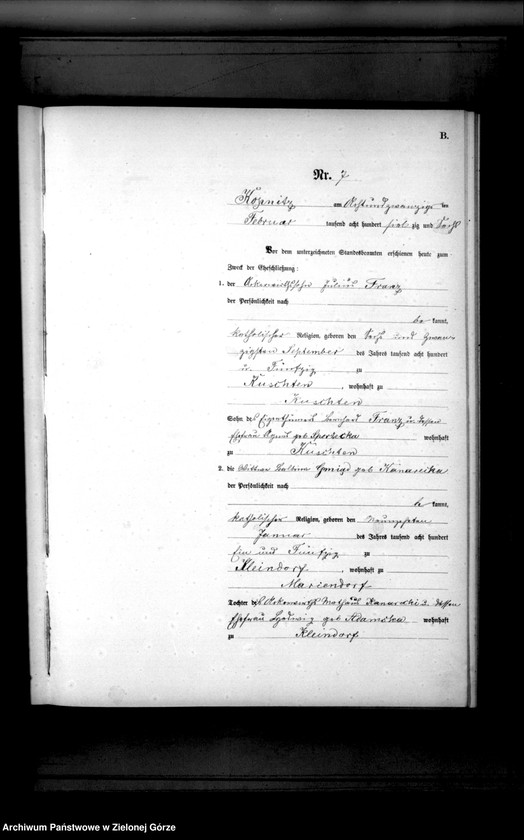 B.
Nr. 7
Kopnitz am Achtundzwanzigsten
Februar tausend acht hundert zig und
Vor dem unterzeichneten Standesbeamten erschienen heute zum
Zweck der Eheschließung:
1. der Julius Franz
der Persönlichkeit nach
be kannt,
katholischer Religion, geboren den Sechs und Zwan-
zigsten September des Jahres tausend acht hundert
u. Fünfzig zu
Kuschten, wohnhaft zu
Kuschten
Sohn des Eigenthümers Franz u. dessen
Ehefrau geb wohnhaft
zu Kuschten
2. die Wittwe geb
der Persönlichkeit nach
be kannt,
katholischer Religion, geboren den Neunzehnten
Januar des Jahres tausend acht hundert
Ein und Fünfzig zu
Kleindorf, wohnhaft zu
Mariendorf
Tochter des dessen
Ehefrau geb Adamska wohnhaft
zu Kleindorf
Archiwum Państwowe w Zielonej Górze